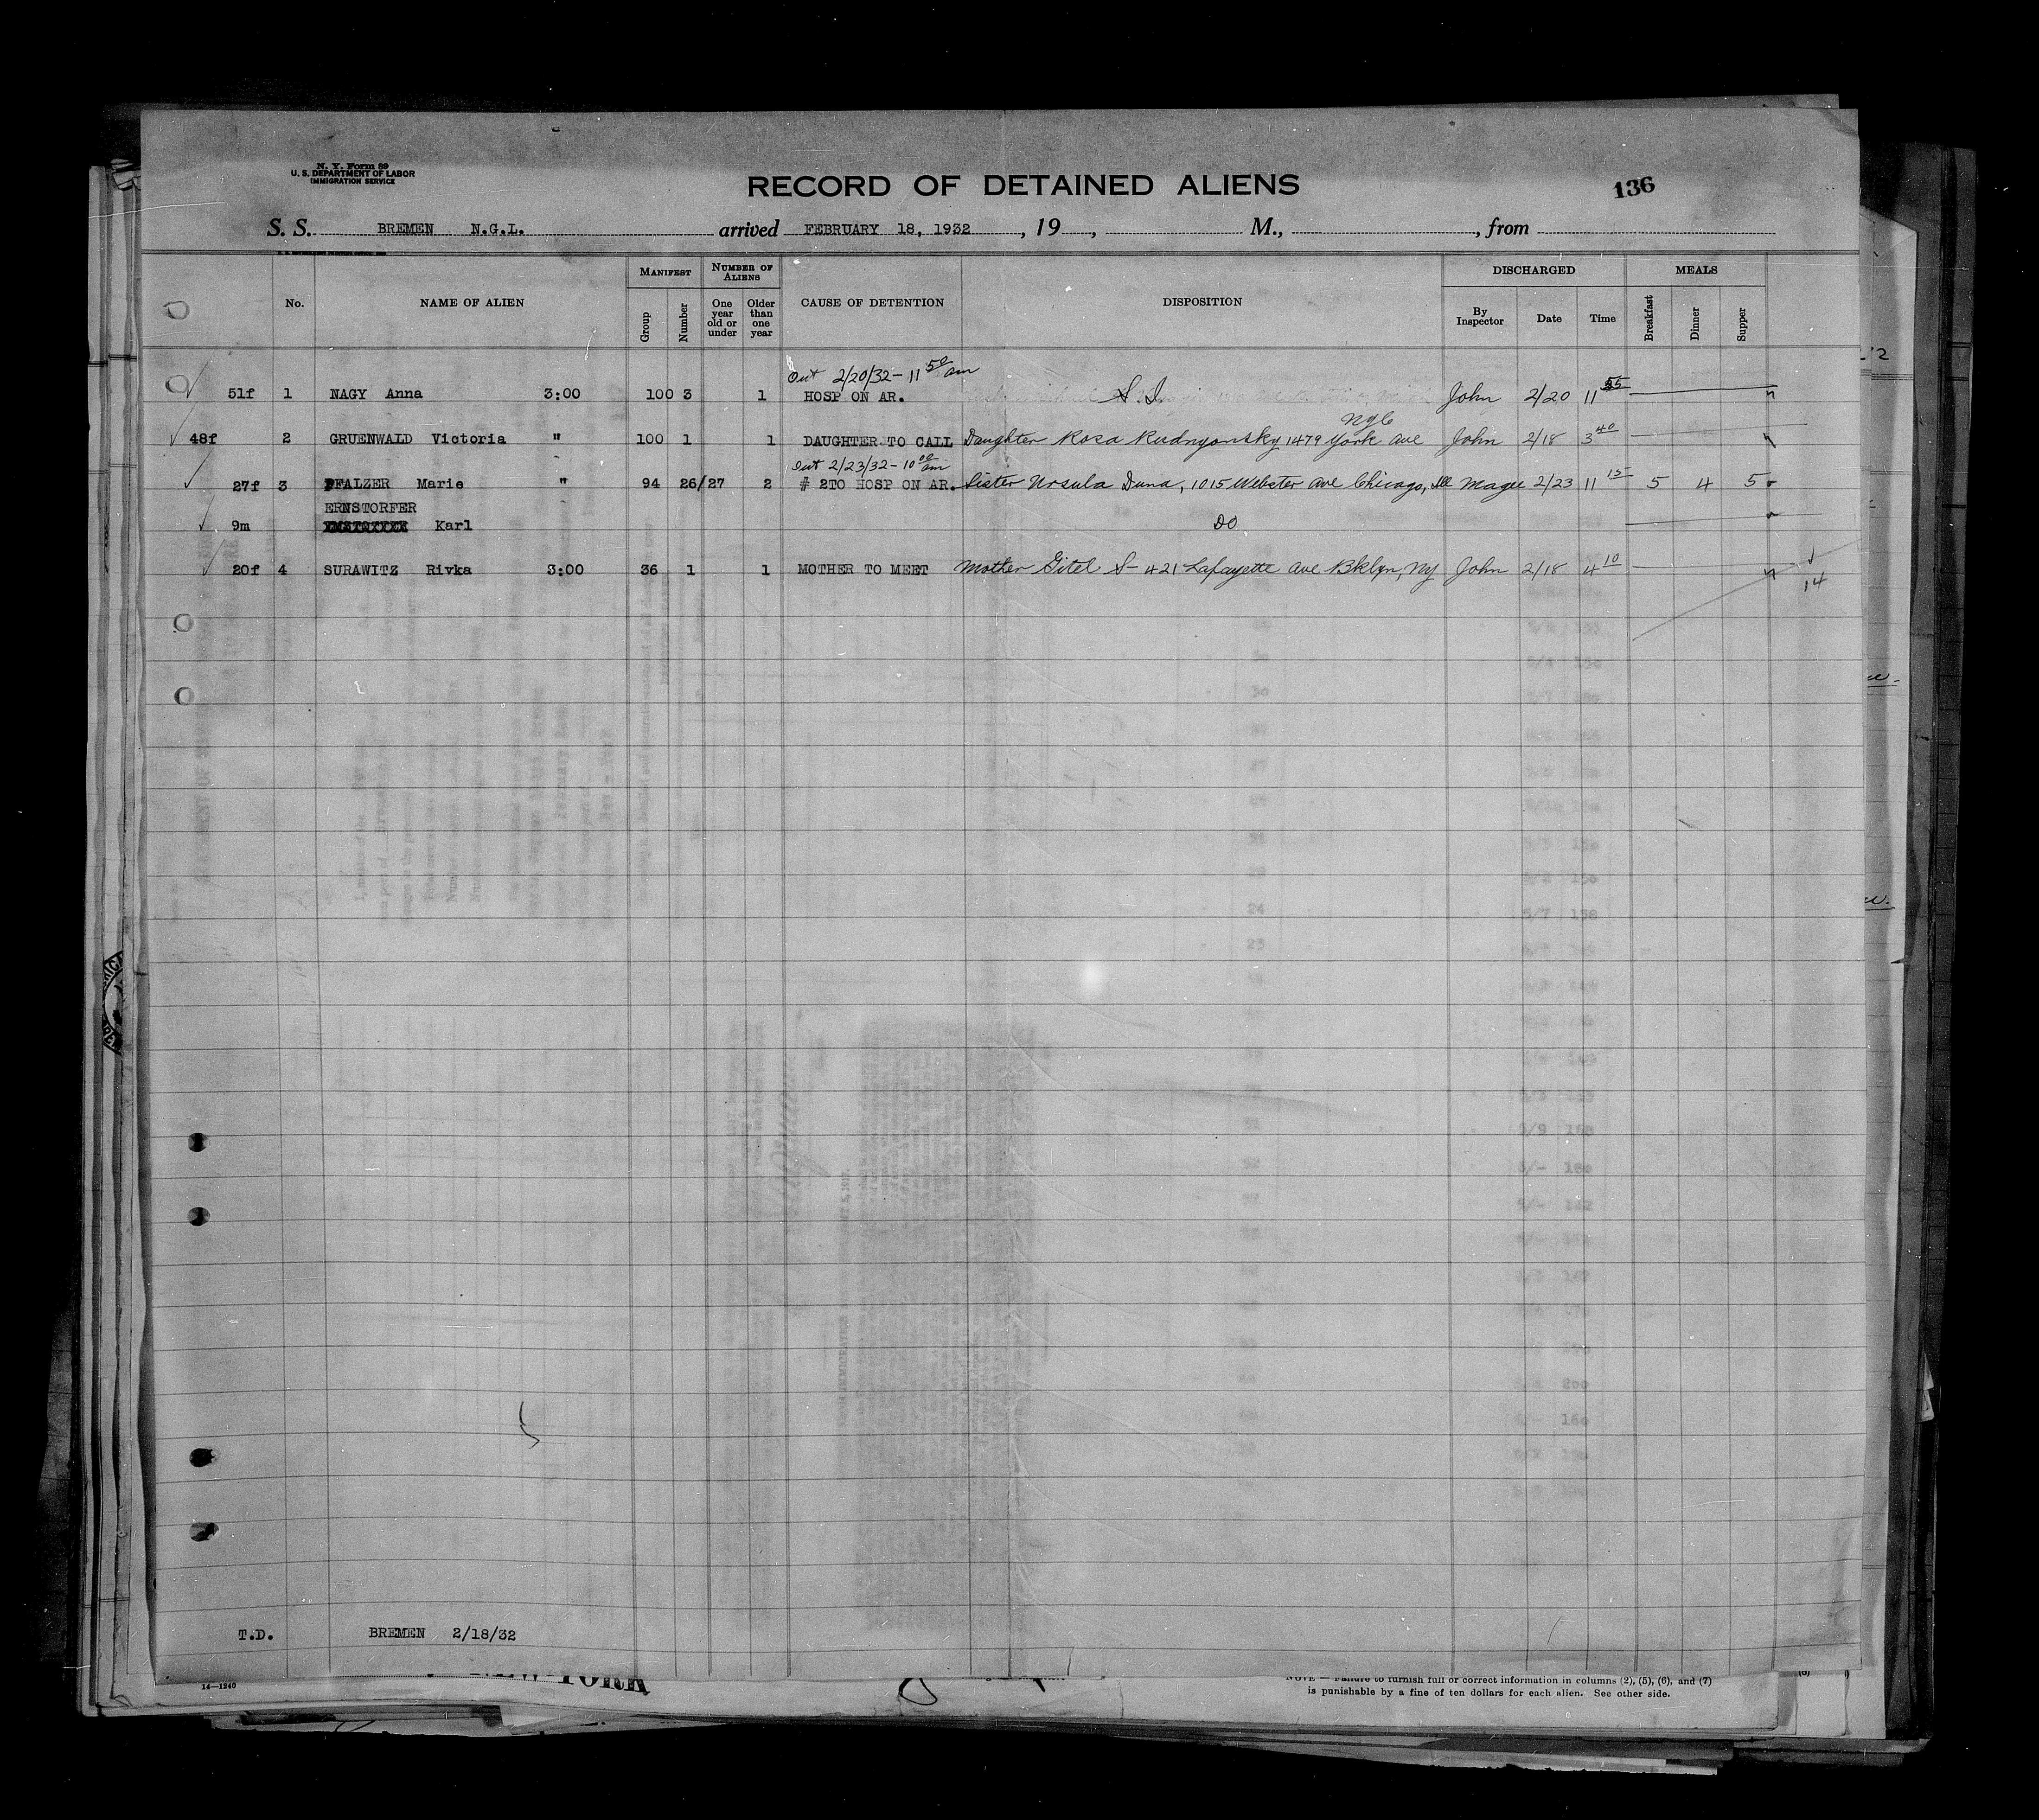 N. Y. Form 89
U. S. DEPARTMENT OF LABOR
IMMIGRATION SERVICE
RECORD OF DETAINED ALIENS
136
S. S. BREMEN N.G.L. arrived FEBRUARY 18, 1932, 19 , M., , from
No. NAME OF ALIEN MANIFEST Group Number NUMBER OF ALIENS One year old or under Older than one year CAUSE OF DETENTION DISPOSITION DISCHARGED By Inspector Date Time MEALS Breakfast Dinner Supper
Out 2/20/32 - 11 50 am
51f 1 NAGY Anna 3:00 100 3 1 HOSP ON AR. S. I. John 2/20 11 55
NYC
48f 2 GRUENWALD Victoria " 100 1 1 DAUGHTER TO CALL Daughter Rosa Rudnyonsky 1479 York Ave John 2/18 3 40
Out 2/23/32 - 10 00 am
27f 3 PFALZER Marie " 94 26/27 2 # 2TO HOSP ON AR. Sister Ursula Duna, 1015 Webster Ave Chicago, Ill Magee 2/23 11 15 5 4 5
ERNSTORFER
9m Karl DO
20f 4 SURAWITZ Rivka 3:00 36 1 1 MOTHER TO MEET Mother Gitel S- 421 Lafayette Ave Bklyn, NY John 2/18 4 10
14
T.D. BREMEN 2/18/32
NEW YORK
14—1240
NOTE — Failure to furnish full or correct information in columns (2), (5), (6), and (7)
is punishable by a fine of ten dollars for each alien. See other side.